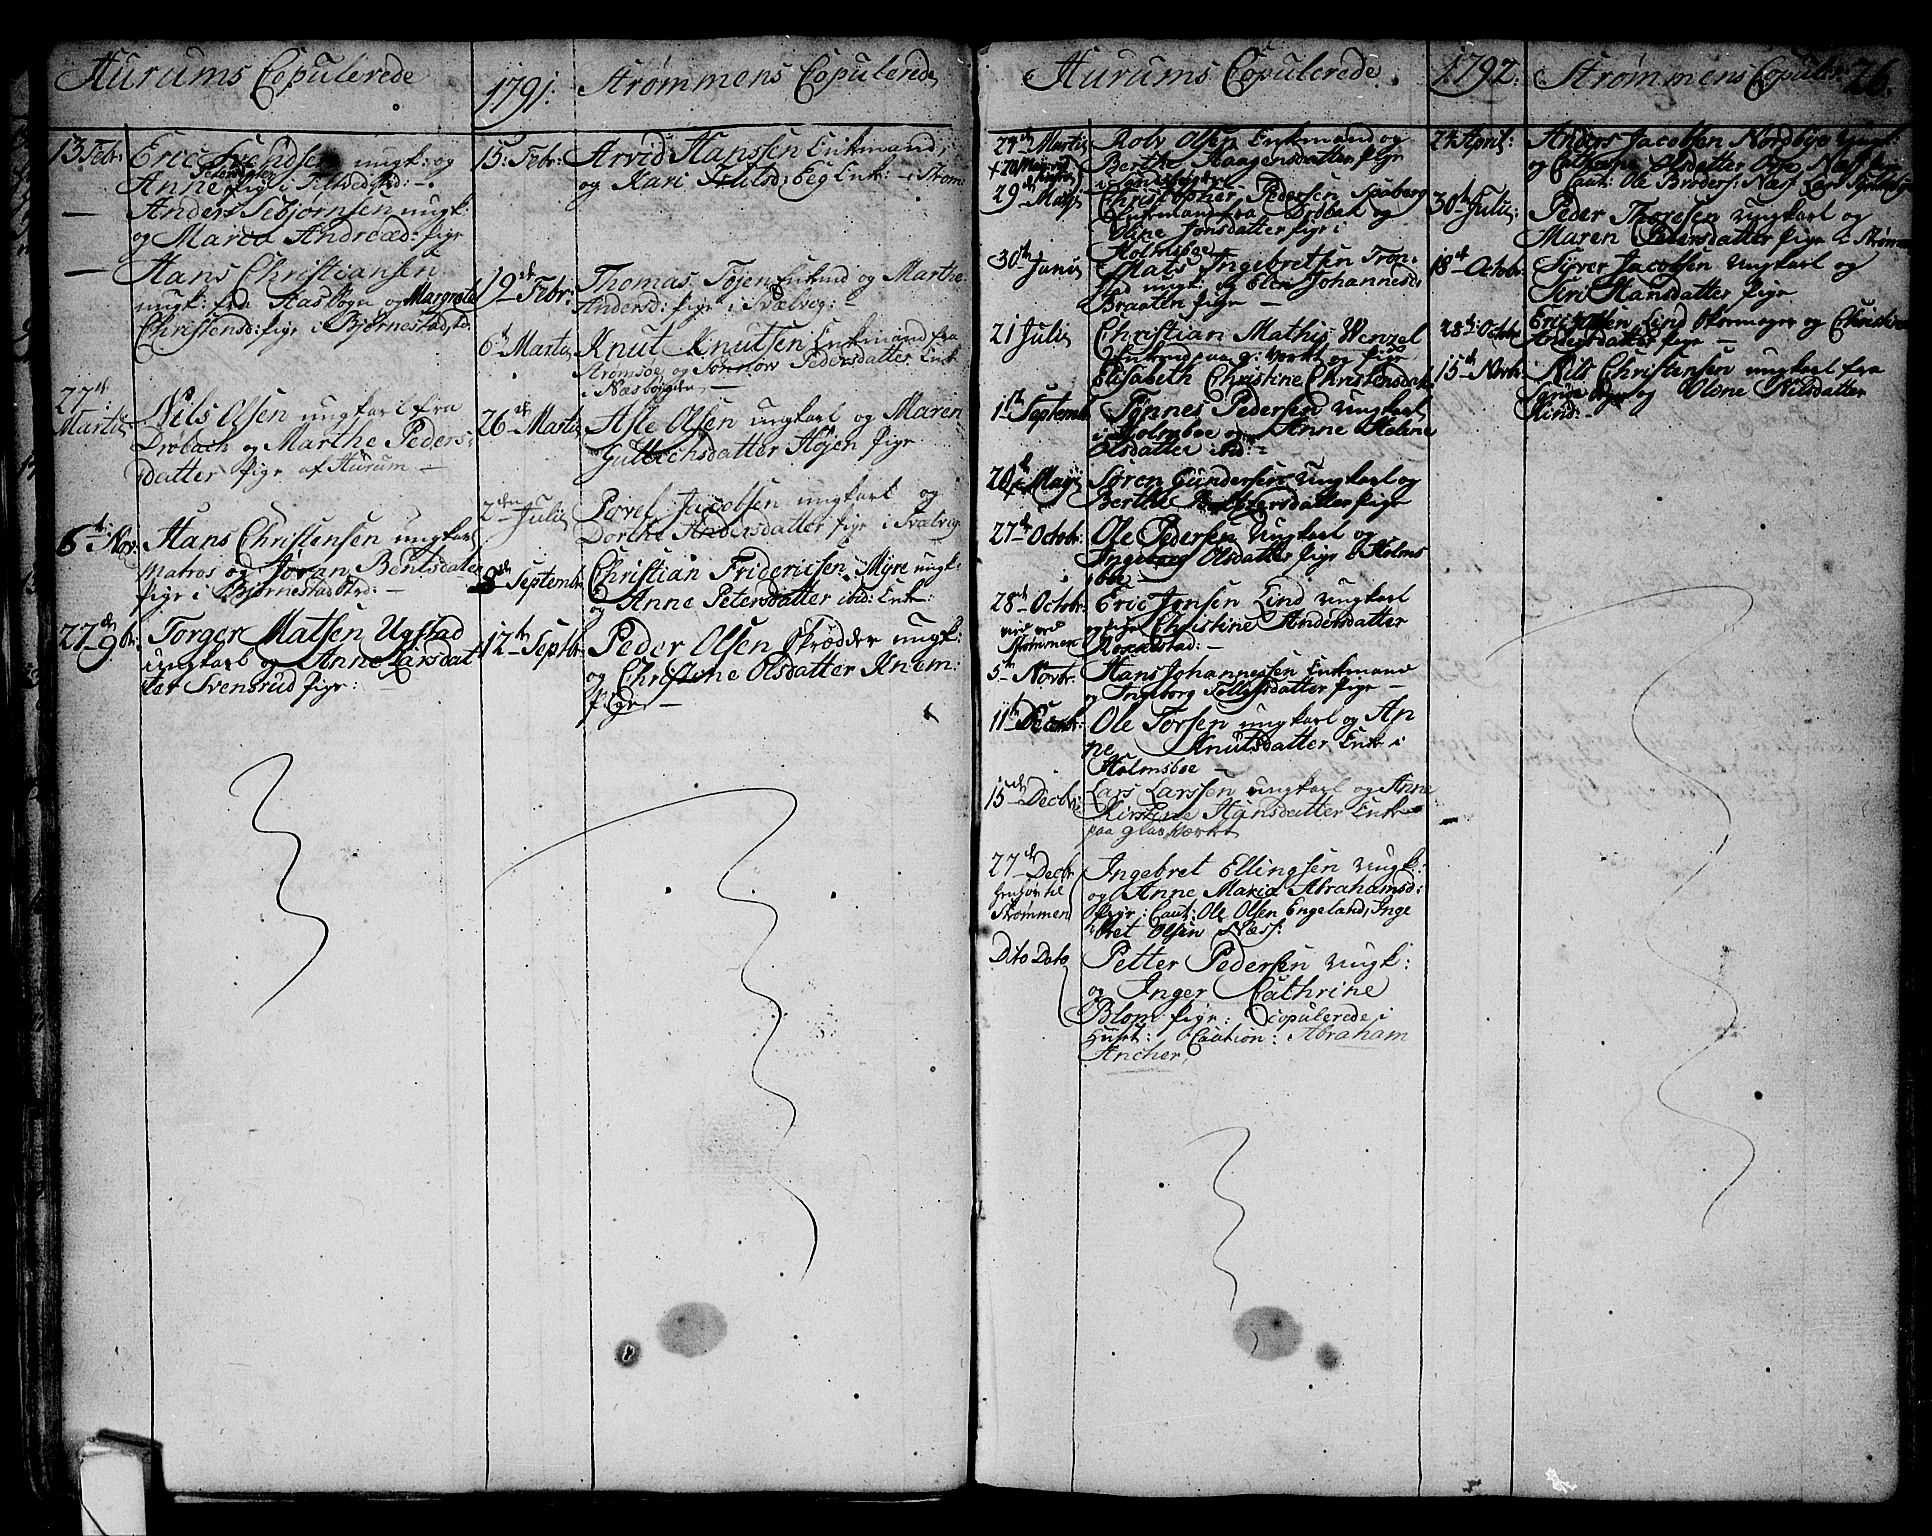 Hurums Copulerede
1791:
13 Febr: Eric Svendsen ungk: og
Anne Petersdatter pige i Tofte
— Anders Sebjørnsen ungk:
og Maria Andreæd: pige
— Hans Christiansen
ungk: fra Aas Sogn og Margrete
Christensd: pige i Bjørnestadstrd:
27de Martii Nils Olsen ungkarl fra
Drøbach og Marthe Peders-
datter pige af Hurum —
6te Nov: Hans Christensen ungkarl
Matros og Jøran Bentsdatter
pige i Bjørnestadstrd: —
27de 9br: Torger Matsen Ugstad
ungkarl og Anne Larsdat
ter Svensrud pige: —
Strømmens Copulerede
15: Febr: Arvid Hanssen Enkemand,
og Kari Enk: i Strøm
19de Febr: Thomas Tøjen Enkmd og Marthe
Andersd: pige i Svælvig:
6te Martii Knut Knutsen Enkemand fra
Strømsøe og Tønnow Pedersdatter Enke
i Næsbygden —
26de Martii Asle Olsen ungkarl og Maren
Gulbichsdatter Højen pige
2den Julii Povel Jacobsen ungkarl og
Dorthe Andersdatter pige i Svælvig
8de Septembr: Christian Fridericsen Myre ungk:
og Anne Petersdatter ibid: Enke:
12te Septbr: Peder Olsen Skrædder ungk:
og Christine Olsdatter Knem:
pige —
Hurums Copulerede
1792:
27de Martii Rolv Olsen Enkmand og
Berthe Haagensdatter pige
29de Maji Christopher Pedersen Saaberg
Enkmand fra Drøbak og
Oline Jonsdatter pige i
Holmsboe —
30te Junii Mats Ingebretsen Tron-
stad ungk: og Elen Johannesd:
Braaten pige —
21 Julii Christian Mathis Wenzel
Enkmd paa g: Verkt og pige
Elisabeth Christine Christensdat:
1te Septembr: Tønnes Pedersen Ungkarl
i Holmsboe og Anne Helene
Olsdatter ibid: —
20de Maji Søren Gundersen Ungkarl og
Berthe pige
27de Octobr: Ole Pedersen Ungkarl og
Ingeborg Olsdatter pige i Holms
boe —
28de Octobr: Eric Jonsen Lind Ungkarl
viet ved Strømmen og pige Christine Andersdatter
Rosenstad: —
5te Novbr: Hans Johannessen Enkemand
og Ingeborg Tollefsdatter pige —
11te Decembr: Ole Torsen ungkarl og An
ne Knutsdatter Enke i
Holmsboe —
15de Decbr: Lars Larssen ungkarl og Anne
Kirstine Hansdatter Enke
paa glasværket
27de Decbr Ingebret Ellingsen ungk:
henhør til Strømmen og Anne Maria Abrahamsd:
pige: Caut: Ole Olsen Engeland, Inge
bret Olsen Næss:
Dito Dato Petter Pedersen ungk:
og Inger Cathrine
Blom pige: copulerede i
Huset: Caution: Abraham
Ancher,
Strømmens Copuler: 26.
24 April: Anders Jacobsen Nordbye Ungk:
og Olsdatter Næss pige
Caut: Ole Broders: Næss
30te Julii: Peder Thoresen ungkarl og
Maren Petersdatter pige i Strømm
18de Octobr: Syver Jacobsen Ungkarl og
Siri Hansdatter pige
28de Octobr: Eric Lind Skomager og Christine
Andersdatter pige —
15de Novbr: Nils Christiansen ungkarl fra
Sogn og Olene Nilsdatter
Rind: —